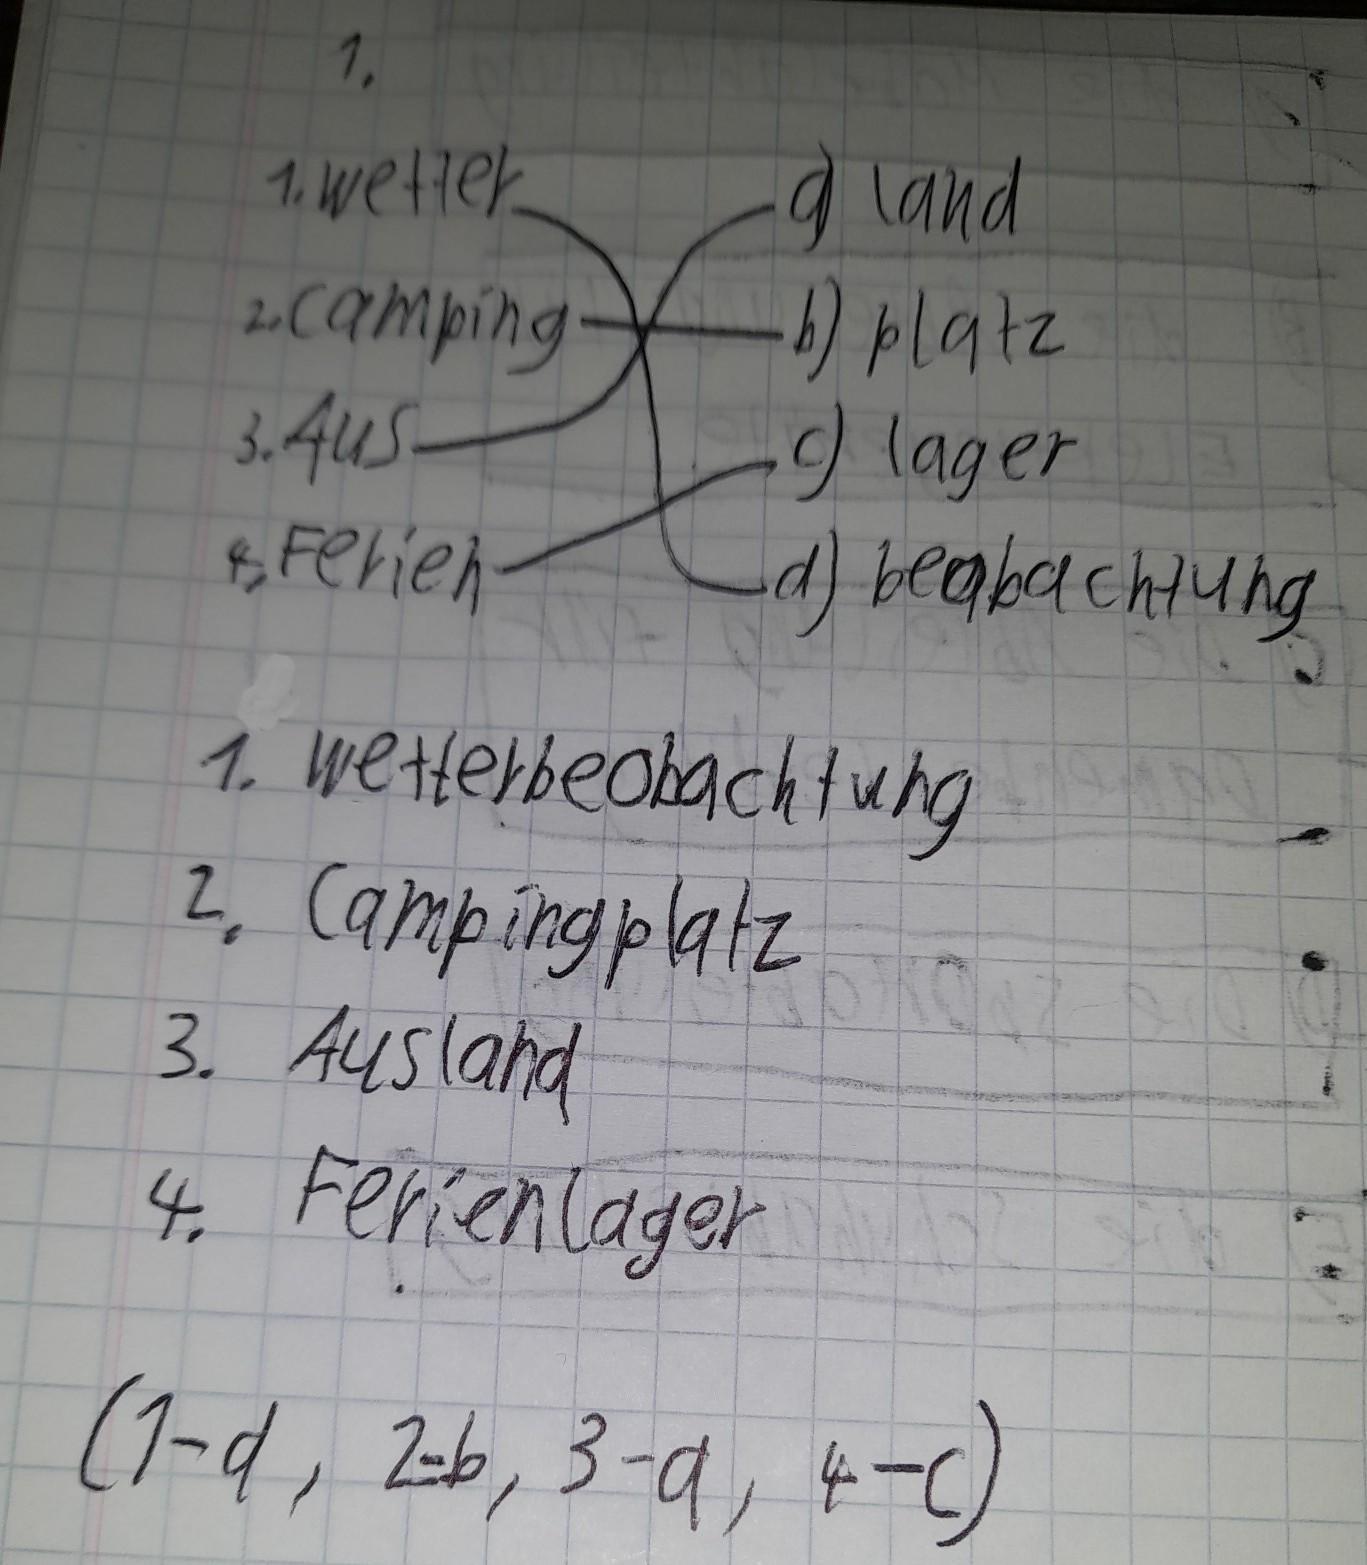 1.
1. wetter a) land
2. Camping b) platz
3. Aus c) lager
4. Ferien d) beobachtung
1. Wetterbeobachtung
2. Campingplatz
3. Ausland
4. Ferienlager
(1-d, 2-b, 3-a, 4-c)